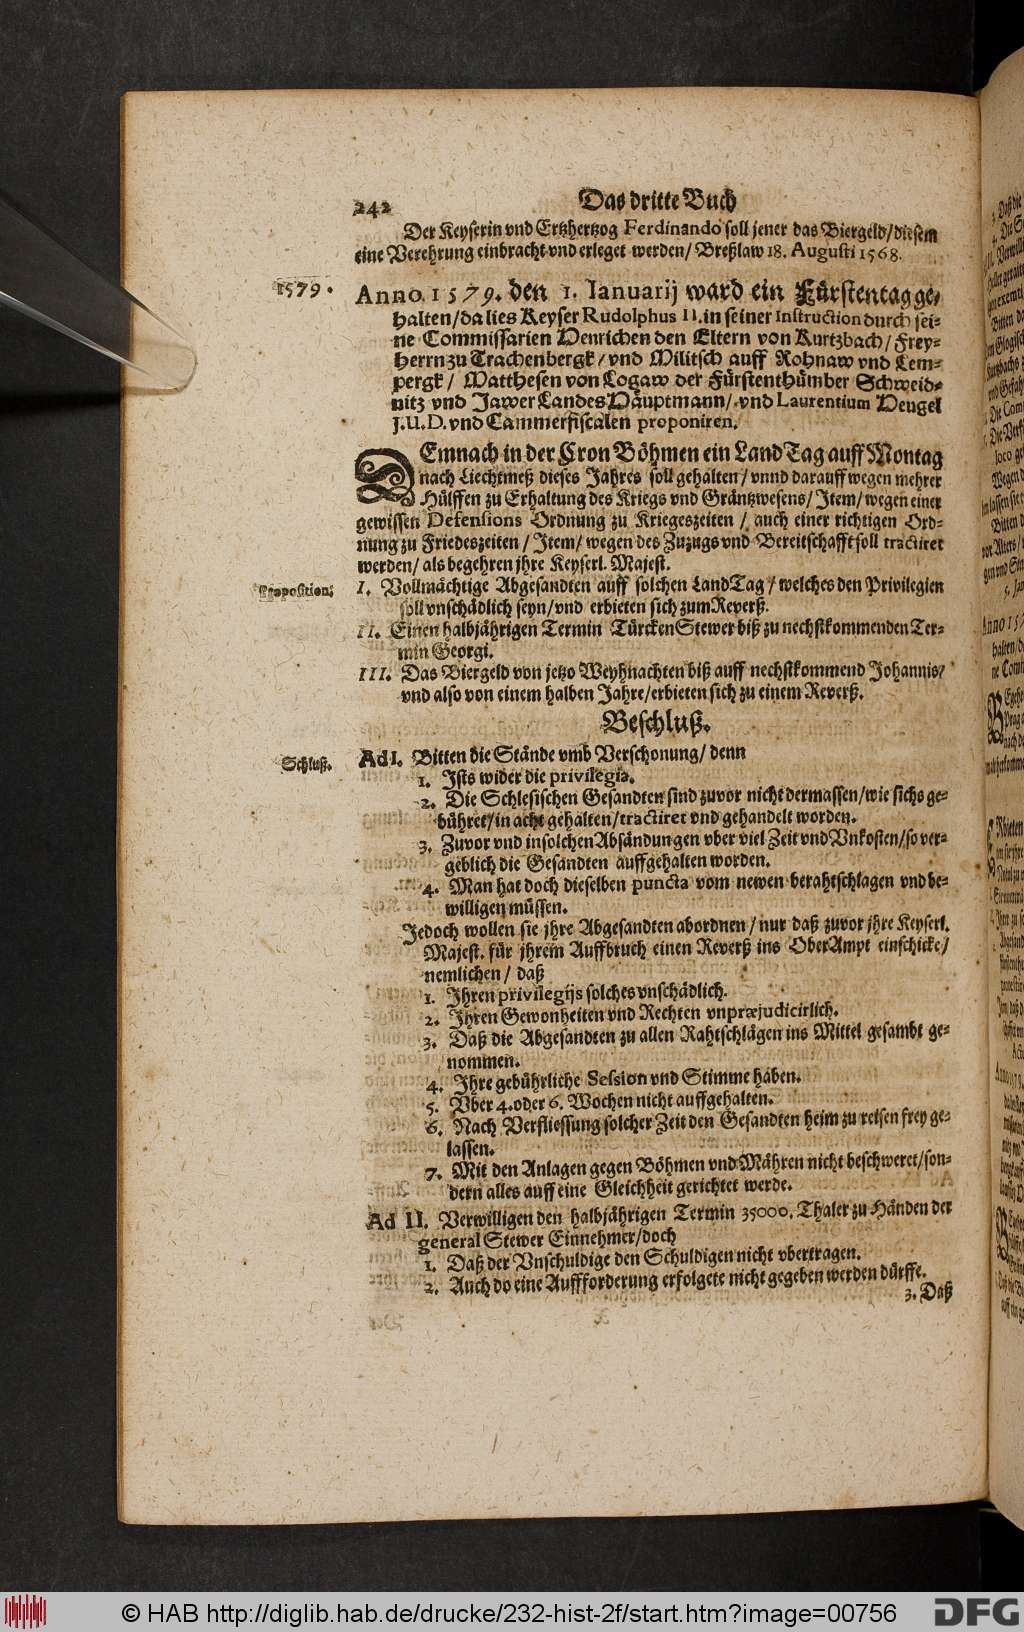 242 Das dritte Buch
Der Keyserin vnd Ertzhertzog Ferdinando soll jener das Biergeld/diesem
eine Verehrung einbracht vnd erleget werden/ Breßlaw 18. Augusti 1568.
1579. Anno. 1579. den 1. Ianuarij ward ein Fürstentag ge-
halten/da lies Keyser Rudolphus II. in seiner Instruction durch sei-
ne Commissarien Henrichen den Eltern von Kurtzbach/ Frey-
herrn zu Trachenbergk/ vnd Militsch auff Rohnaw vnd Lem-
pergk/ Matthesen von Logaw der Fürstenthümber Schweid-
nitz vnd Jawer Landes Häuptmann/ vnd Laurentium Heugel
J.U.D. vnd Cammerfiscalen proponiren.
DEmnach in der Cron Böhmen ein Land Tag auff Montag
nach Liechtmeß dieses Jahres soll gehalten/ vnnd darauff wegen mehrer
Hülffen zu Erhaltung des Kriegs vnd Gräntzwesens/ Item/ wegen einer
gewissen Defensions Ordnung zu Kriegeszeiten / auch einer richtigen Ord-
nung zu Friedeszeiten / Item/ wegen des Zuzugs vnd Bereitschafft soll tractiret
werden/ als begehren jhre Keyserl. Majest.
Proposition. I. Vollmächtige Abgesandten auff solchen LandTag / welches den Privilegien
soll vnschädlich seyn/vnd erbieten sich zum Reverß.
II. Einen halbjährigen Termin TürckenStewer biß zu nechstkommenden Ter-
min Georgi.
III. Das Biergeld von jetzo Weyhnachten biß auff nechstkommend Johannis/
vnd also von einem halben Jahre/erbieten sich zu einem Reverß.
Beschluß.
Schluß. Ad I. Bitten die Stände vmb Verschonung/ denn
1. Ists wider die privilegia.
2. Die Schlesischen Gesandten sind zuvor nicht dermassen/wie sichs ge-
bühret/in acht gehalten/tractiret vnd gehandelt worden.
3. Zuvor vnd in solchen Absändungen vber viel Zeit vnd Vnkosten/so ver-
geblich die Gesandten auffgehalten worden.
4. Man hat doch dieselben puncta vom newen berahtschlagen vnd be-
willigen müssen.
Jedoch wollen sie jhre Abgesandten abordnen / nur daß zuvor jhre Keyserl.
Majest. für jhrem Auffbruch einen Reverß ins OberAmpt einschicke/
nemlichen / daß
1. Ihren privilegijs solches vnschädlich.
2. Ihren Gewonheiten vnd Rechten vnpræjudicirlich.
3. Daß die Abgesandten zu allen Rahtschlägen ins Mittel gesambt ge-
nommen.
4. Ihre gebührliche Session vnd Stimme haben.
5. Vber 4. oder 6. Wochen nicht auffgehalten.
6. Nach Verfliessung solcher Zeit den Gesandten heim zu reisen frey ge-
lassen.
7. Mit den Anlagen gegen Böhmen vnd Mähren nicht beschweret/son-
dern alles auff eine Gleichheit gerichtet werde.
Ad II. Verwilligen den halbjährigen Termin 35000. Thaler zu Händen der
general Stewer Einnehmer/doch
1. Daß der Vnschuldige den Schuldigen nicht vbertragen.
2. Auch do eine Auffforderung erfolgete nicht gegeben werden dürffe.
3. Daß
© HAB http://diglib.hab.de/drucke/232-hist-2f/start.htm?image=00756 DFG